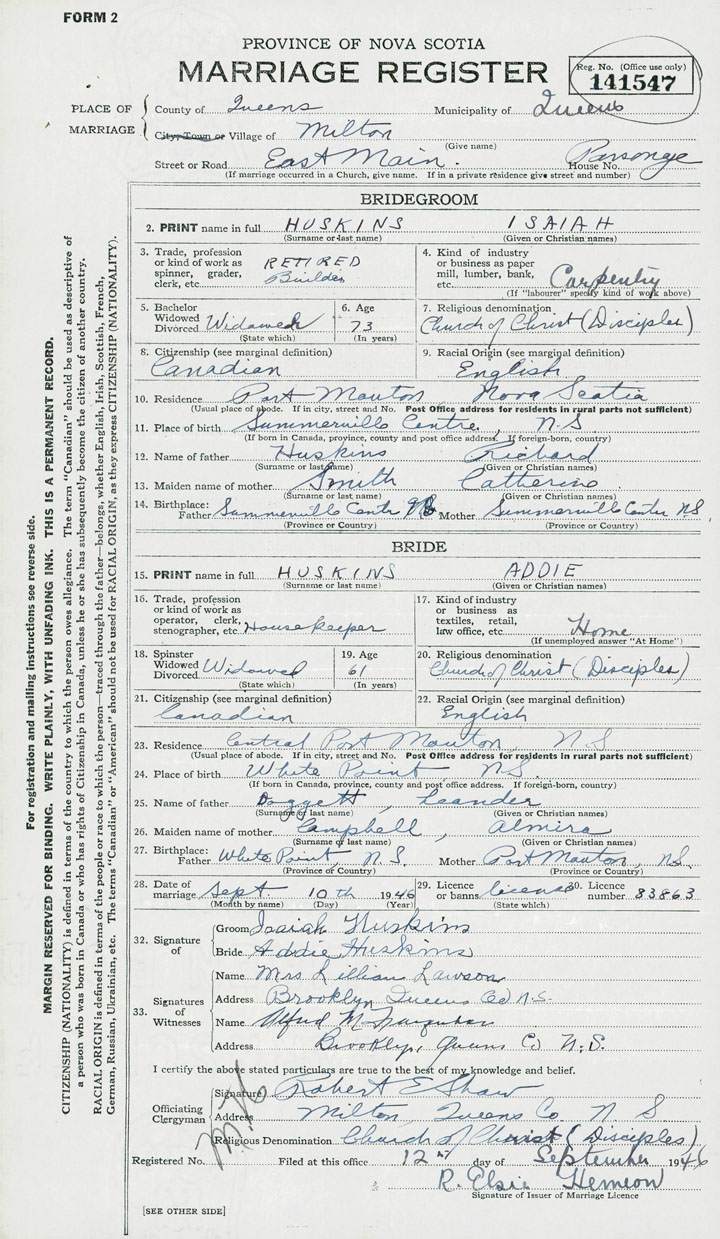 FORM 2
PROVINCE OF NOVA SCOTIA
MARRIAGE REGISTER
Reg. No. (Office use only)
141547
PLACE OF MARRIAGE
County of Queens Municipality of Queens
City, Town or Village of Milton
(Give name)
Street or Road East Main. House No. Parsonge
(If marriage occurred in a Church, give name. If in a private residence give street and number)
BRIDEGROOM
2. PRINT name in full HUSKINS ISAIAH
(Surname or last name) (Given or Christian names)
3. Trade, profession or kind of work as spinner, grader, clerk, etc. RETIRED Builder
4. Kind of industry or business as paper mill, lumber, bank, etc. Carpentry
(If "labourer" specify kind of work above)
5. Bachelor Widowed Divorced Widowed
(State which)
6. Age 73
(In years)
7. Religious denomination
Church of Christ (Disciples)
8. Citizenship (see marginal definition)
Canadian
9. Racial Origin (see marginal definition)
English
10. Residence Port Mouton, Nova Scotia
(Usual place of abode. If in city, street and No. Post Office address for residents in rural parts not sufficient)
11. Place of birth Summerville Centre, N.S.
(If born in Canada, province, county and post office address. If foreign-born, country)
12. Name of father Huskins Richard
(Surname or last name) (Given or Christian names)
13. Maiden name of mother Smith Catherine
(Surname or last name) (Given or Christian names)
14. Birthplace: Father Summerville Center NS Mother Summerville Center N.S.
(Province or Country) (Province or Country)
BRIDE
15. PRINT name in full HUSKINS ADDIE
(Surname or last name) (Given or Christian names)
16. Trade, profession or kind of work as operator, clerk, stenographer, etc. Housekeeper
17. Kind of industry or business as textiles, retail, law office, etc. Home
(If unemployed answer "At Home")
18. Spinster Widowed Divorced Widowed
(State which)
19. Age 61
(In years)
20. Religious denomination
Church of Christ (Disciples)
21. Citizenship (see marginal definition)
Canadian
22. Racial Origin (see marginal definition)
English
23. Residence Central Port Mouton, N.S
(Usual place of abode. If in city, street and No. Post Office address for residents in rural parts not sufficient)
24. Place of birth White Point N.S.
(If born in Canada, province, county and post office address. If foreign-born, country)
25. Name of father Doggett, Leander
(Surname or last name) (Given or Christian names)
26. Maiden name of mother Campbell, Almira
(Surname or last name) (Given or Christian names)
27. Birthplace: Father White Point, N.S. Mother Port Mouton, N.S.
(Province or Country) (Province or Country)
28. Date of marriage Sept. 10th 1946
(Month by name) (Day) (Year)
29. Licence or banns license
(State which)
30. Licence number 83863
32. Signature of
Groom Isaiah Huskins
Bride Addie Huskins
33. Signatures of Witnesses
Name Mrs Lillian Lawson
Address Brooklyn Queens Co N.S.
Name Alfred M
Address Brooklyn, Queens Co N.S.
I certify the above stated particulars are true to the best of my knowledge and belief.
Officiating Clergyman
Signature Robert E Shaw
Address Milton, Queens Co N S
Religious Denomination Church of Christ (Disciples)
Registered No. Filed at this office 12 day of September 1946
R. Elsie Hemeon
Signature of Issuer of Marriage Licence
[SEE OTHER SIDE]
For registration and mailing instructions see reverse side.
MARGIN RESERVED FOR BINDING. WRITE PLAINLY, WITH UNFADING INK. THIS IS A PERMANENT RECORD.
CITIZENSHIP (NATIONALITY) is defined in terms of the country to which the person owes allegiance. The term "Canadian" should be used as descriptive of
a person who was born in Canada or who has rights of Citizenship in Canada, unless he or she has subsequently become the citizen of another country.
RACIAL ORIGIN is defined in terms of the people or race to which the person—traced through the father—belongs, whether English, Irish, Scottish, French,
German, Russian, Ukrainian, etc. The terms "Canadian" or "American" should not be used for RACIAL ORIGIN, as they express CITIZENSHIP (NATIONALITY).